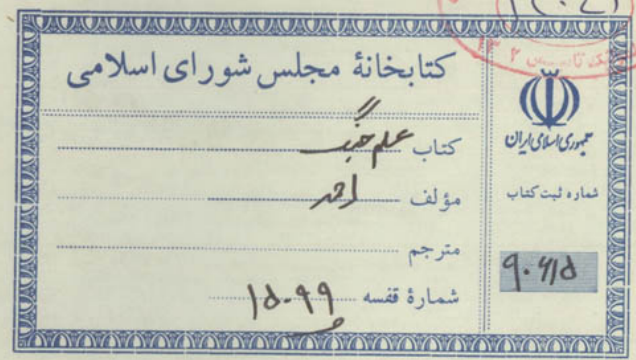 کتابخانهٔ مجلس شورای اسلامی
کتاب علم جنگ
مؤلف احمد
مترجم
شمارهٔ قفسه ۱۵۰۹۹
جمهوری اسلامی ایران
شماره ثبت کتاب
۹۰۶۱۵